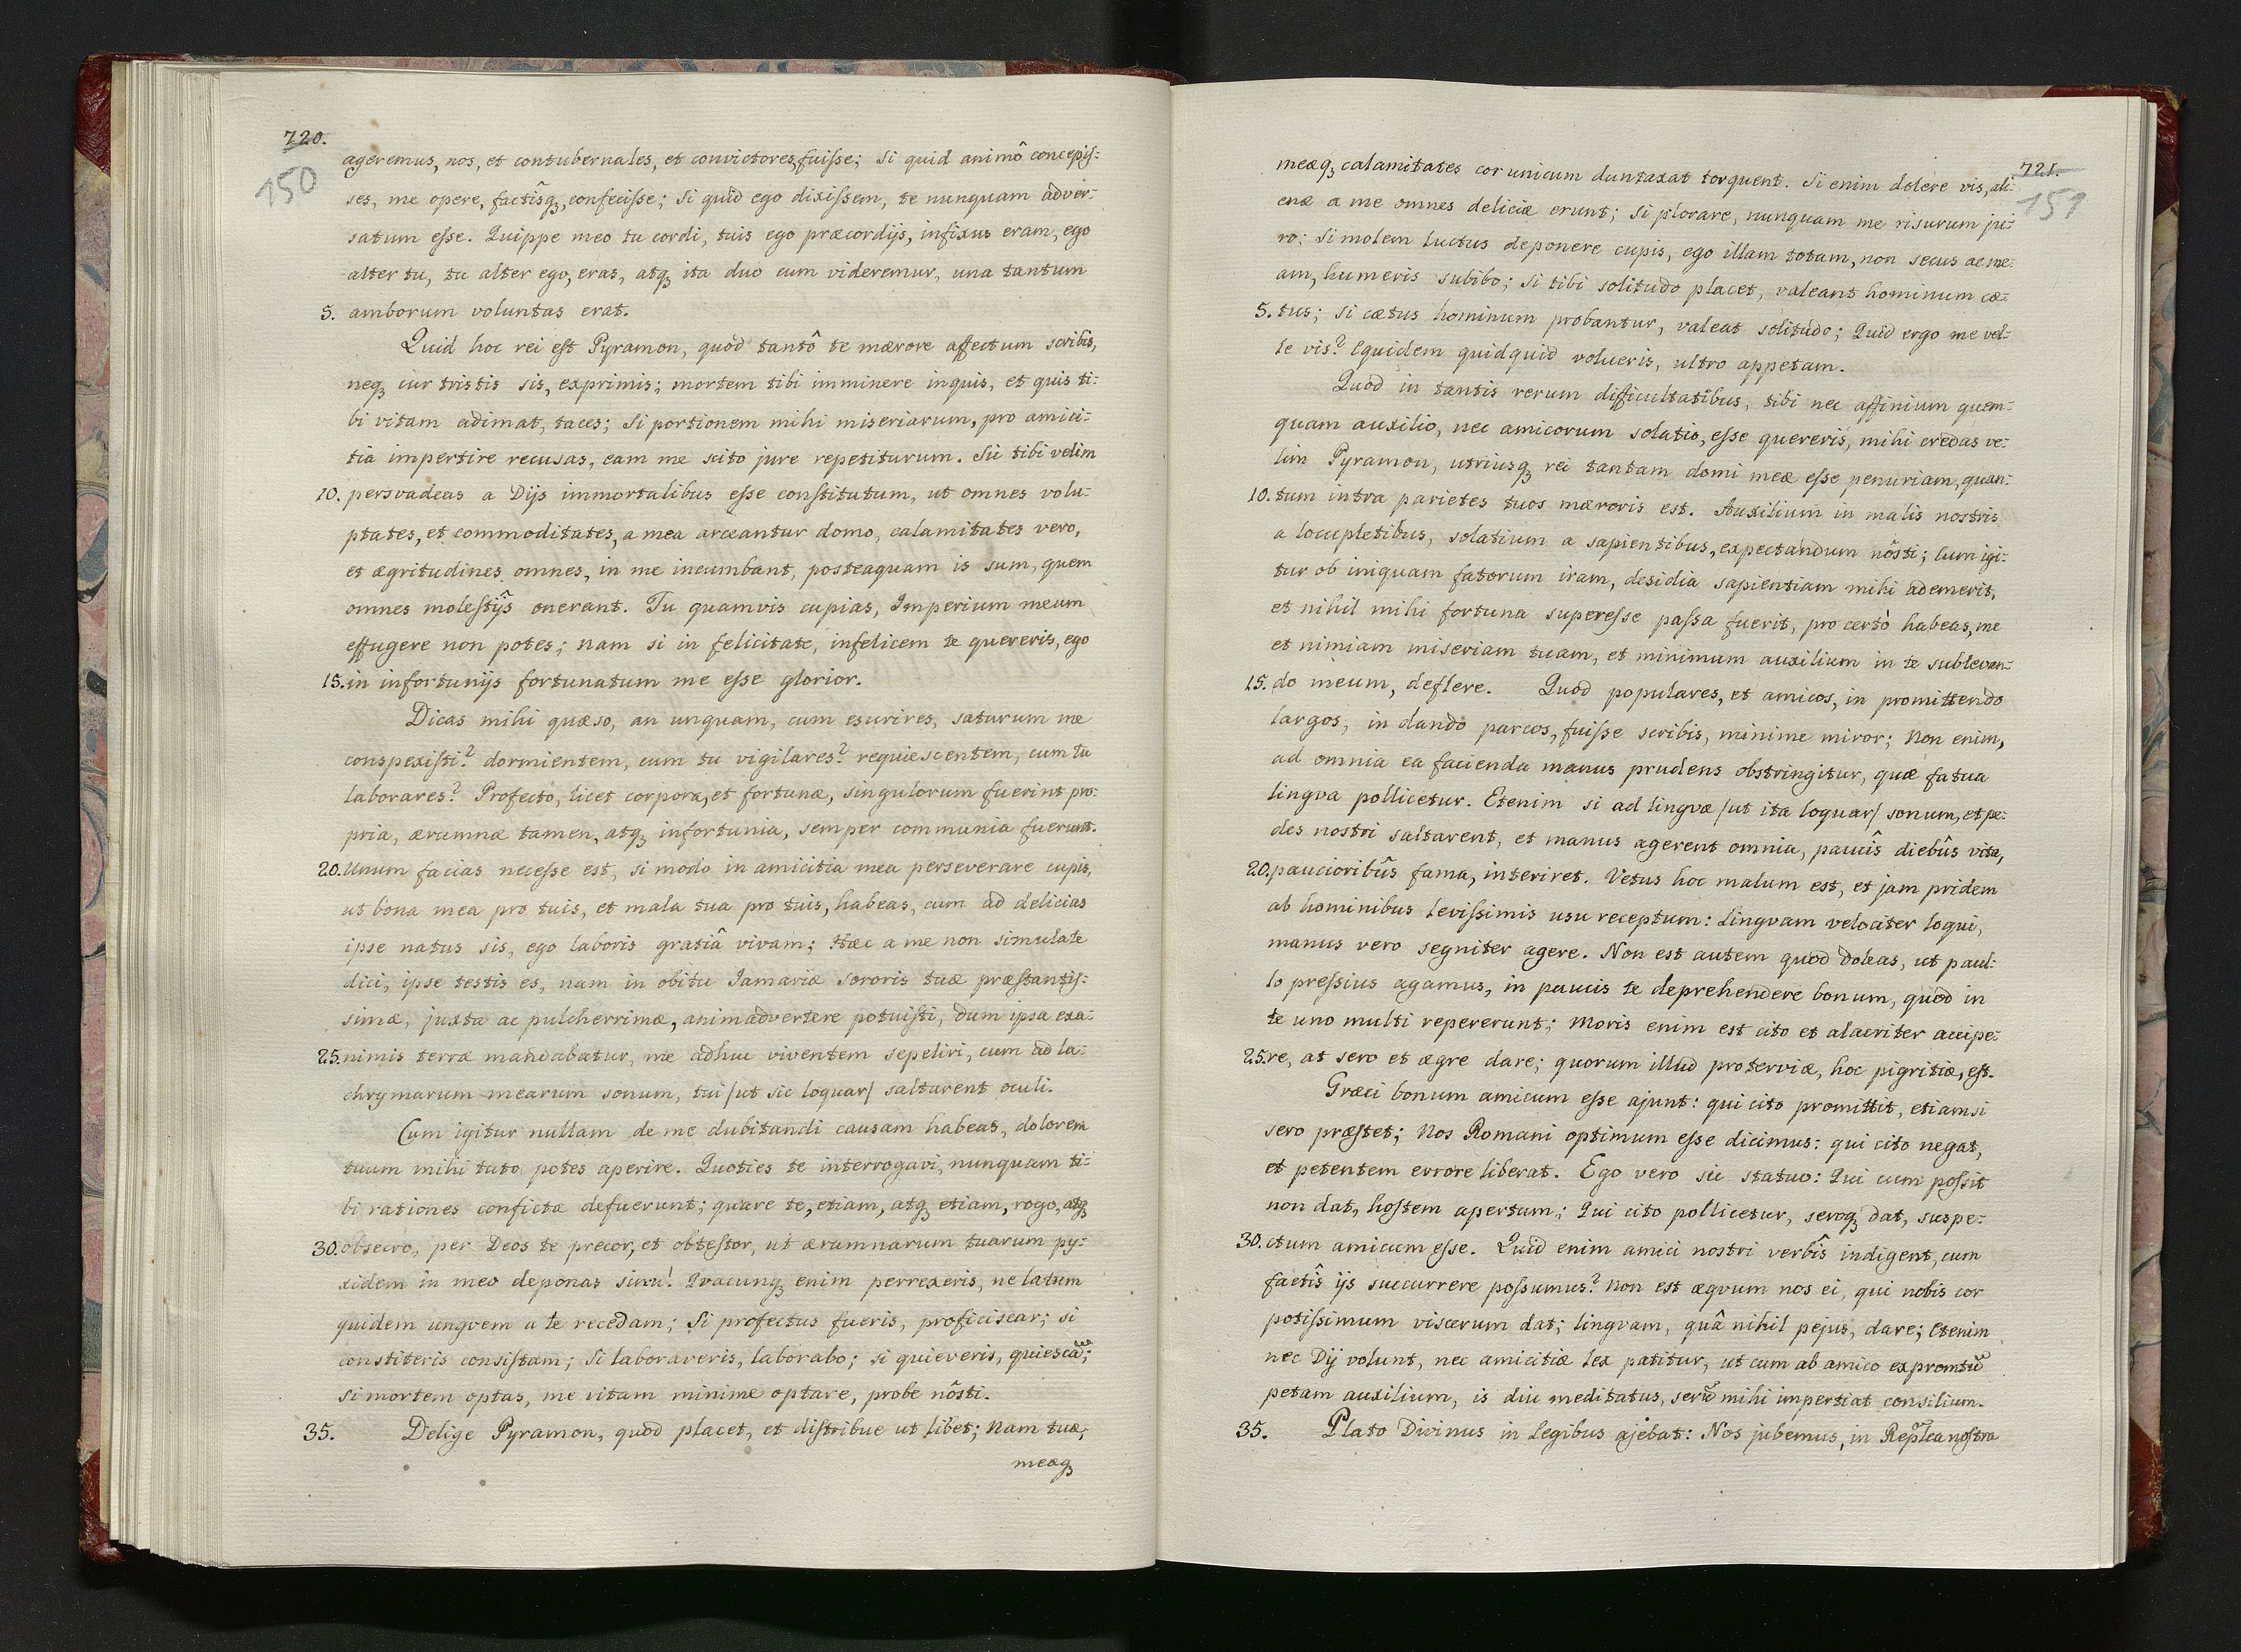 720.
150
ageremus, nos, et contubernales, et convictores, fuisse; Si quid animô concepis:
ses, me opere, factîsq, confecisse; Si quid ego dixissem, te nunquam adver:
satum esse. Quippe meo tu cordi, tuis ego præcordijs, infixus eram, ego
alter tu, tu alter ego, eras, atq ita duo cum videremur, una tantum
5. amborum voluntas erat.
Quid hoc rei est Pyramon, quod tantô te mærore affectum scribis,
neq cur tristis sis, exprimis; mortem tibi imminere inquis, et quis ti:
bi vitam adimat, taces; Si portionem mihi miseriarum, pro amici:
tia impertire recusas, eam me scito jure repetiturum. Sic tibi velim
10. persvadeas a Dijs immortalibus esse constitutum, ut omnes volu:
ptates, et commoditates, a mea arceantur domo, calamitates vero,
et ægritudines omnes, in me incumbant, posteaquam is sum, quem
omnes molestijs onerant. Tu quamvis cupias, Imperium meum
effugere non potes; nam si in felicitate, infelicem te quereris, ego
15. in infortunijs fortunatum me esse glorior.
Dicas mihi quæso, an unquam, cum esurires, saturum me
conspexisti? dormientem, cum tu vigilares? requiescentem, cum tu
laborares? Profecto, licet corpora, et fortunæ, singulorum fuerint pro:
pria, ærumnæ tamen, atq infortunia, semper communia fuerunt.
20. Unum facias necesse est, si modo in amicitia mea perseverare cupis,
ut bona mea pro tuis, et mala tua pro tuis, habeas, cum ad delicias
ipse natus sis, ego laboris gratiâ vivam; Hæc a me non simulate
dici, ipse testis es, nam in obitu Iamariæ sororis tuæ præstantis:
simæ, juxta ac pulcherrimæ, animadvertere potuisti, dum ipsa exa:
25. nimis terræ mandabatur, me adhuc viventem sepeliri, cum ad la:
chrymarum mearum sonum, tui /ut sic loquar/ saltarent oculi.
Cum igitur nullam de me dubitandi causam habeas, dolorem
tuum mihi tuto potes aperire. Quoties te interrogavi, nunquam ti:
bi rationes confictæ defuerunt; quare te, etiam, atq etiam, rogo, atq
30. obsecro, per Deos te precor, et obtestor, ut ærumnarum tuarum py:
xidem in meo deponas sinu! Qvacunq enim perrexeris, ne latum
quidem ungvem a te recedam; Si profectus fueris, proficiscar; si
constiteris consistam; Si laboraveris, laborabo; si quieveris, quiescã;
si mortem optas, me vitam minime optare, probe nôsti.
35. Delige Pyramon, quod placet, et distribue ut libet; Nam tuæ,
meaq
721.
151
meæq calamitates cor unicum duntaxat torquent. Si enim dolere vis, ali:
enæ a me omnes deliciæ erunt; Si plorare, nunquam me risurum ju:
ro; Si molem luctus deponere cupis, ego illam totam, non secus ac me:
am, humeris subibo; Si tibi solitudo placet, valeant hominum cæ:
5. tus; Si cætus hominum probantur, valeat solitudo; Quid ergo me vel:
le vis? Equidem quidquid volueris, ultro appetam.
Quod in tantis rerum difficultatibus, tibi nec affinium quem:
quam auxilio, nec amicorum solatio, esse quereris, mihi credas ve:
lim Pyramon, utriusq rei tantam domi meæ esse penuriam, quan:
10. tum intra parietes tuos mæroris est. Auxilium in malis nostris
a locupletibus, solatium a sapientibus, expectandum nôsti; Cum igi:
tur ob iniquam fatorum iram, desidia sapientiam mihi ademerit,
et nihil mihi fortuna superesse passa fuerit, pro certò habeas, me
et nimiam miseriam tuam, et minimum auxilium in te subleven:
15. do meum, deflere. Quod populares, et amicos, in promittendo
largos, in dando parcos, fuisse scribis, minime miror; Non enim,
ad omnia ea facienda manus prudens obstringitur, quæ fatua
lingva pollicetur. Etenim si ad lingvæ /ut ita loquar/ sonum, et pe:
des nostri saltarent, et manus agerent omnia, paucîs diebûs vita,
20. paucioribûs fama, interiret. Vetus hoc malum est, et jam pridem
ab hominibus levissimis usu receptum: Lingvam velociter loqui,
manus vero segniter agere. Non est autem quod doleas, ut paul:
lo pressius agamus, in paucis te deprehendere bonum, quod in
te uno multi repererunt; Moris enim est cito et alacriter accipe:
25. re, at sero et ægre dare; quorum illud proterviæ, hoc pigritiæ, est.
Græci bonum amicum esse ajunt: qui cito promittit, etiamsi
sero præstet; Nos Romani optimum esse dicimus: qui cito negat,
et petentem errore liberat. Ego vero sic statuo: Qui cum possit
non dat, hostem apertum; Qui cito pollicetur, seroq dat, suspe:
30. ctum amicum esse. Quid enim amici nostri verbîs indigent, cum
factîs ijs succurrere possumus? Non est æqvum nos ei, qui nobis cor
potissimum viscerum dat; lingvam, quâ nihil pejus, dare; Etenim
nec Dij volunt, nec amicitiæ lex patitur, ut cum ab amico expromtũ
petam auxilium, is diu meditatus, serũ mihi impertiat consilium.
35. Plato Divinus in Legibus ajebat: Nos jubemus, in Repl͠ca nostra